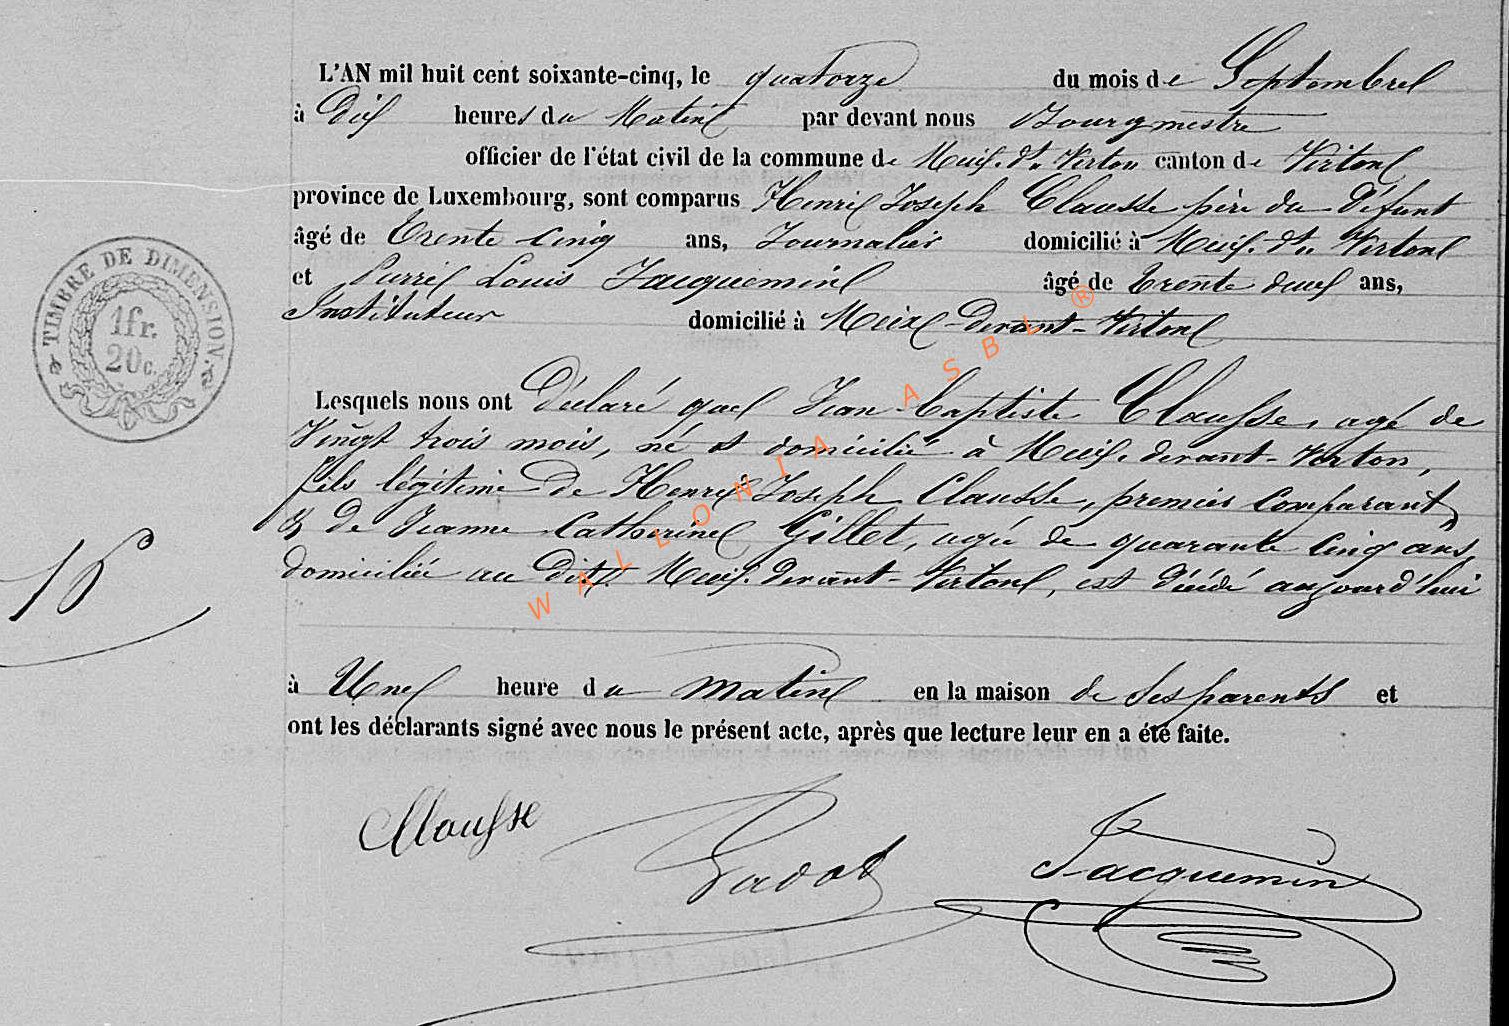 L'AN mil huit cent soixante-cinq, le quatorze du mois de Septembre
à Dix heures du Matin par devant nous Bourgmestre
officier de l'état civil de la commune de Meix. dt. Virton canton de Virton
province de Luxembourg, sont comparus Henri Joseph Clausse père du défunt
âgé de Trente cinq ans, Journalier domicilié à Meix. dt. Virton
et Pierre Louis Jacquemin âgé de trente deux ans,
Instituteur domicilié à Meix-devant-Virton
TIMBRE DE DIMENSION.
1 fr.
20 c.
Lesquels nous ont Déclaré que Jean Baptiste Clausse, agé de
Vingt trois mois, né et domicilié à Meix. devant-Virton,
fils légitime de Henri Joseph Clausse, premier comparant,
& de Jeanne Catherine Gillet, agée de quarante cinq ans,
domiciliée au dit Meix. devant-Virton, est décédé aujourd'hui
16
à Une heure du matin en la maison de Ses parents et
ont les déclarants signé avec nous le présent acte, après que lecture leur en a été faite.
Clausse Jacquemin
WALLONIA ASBL ®